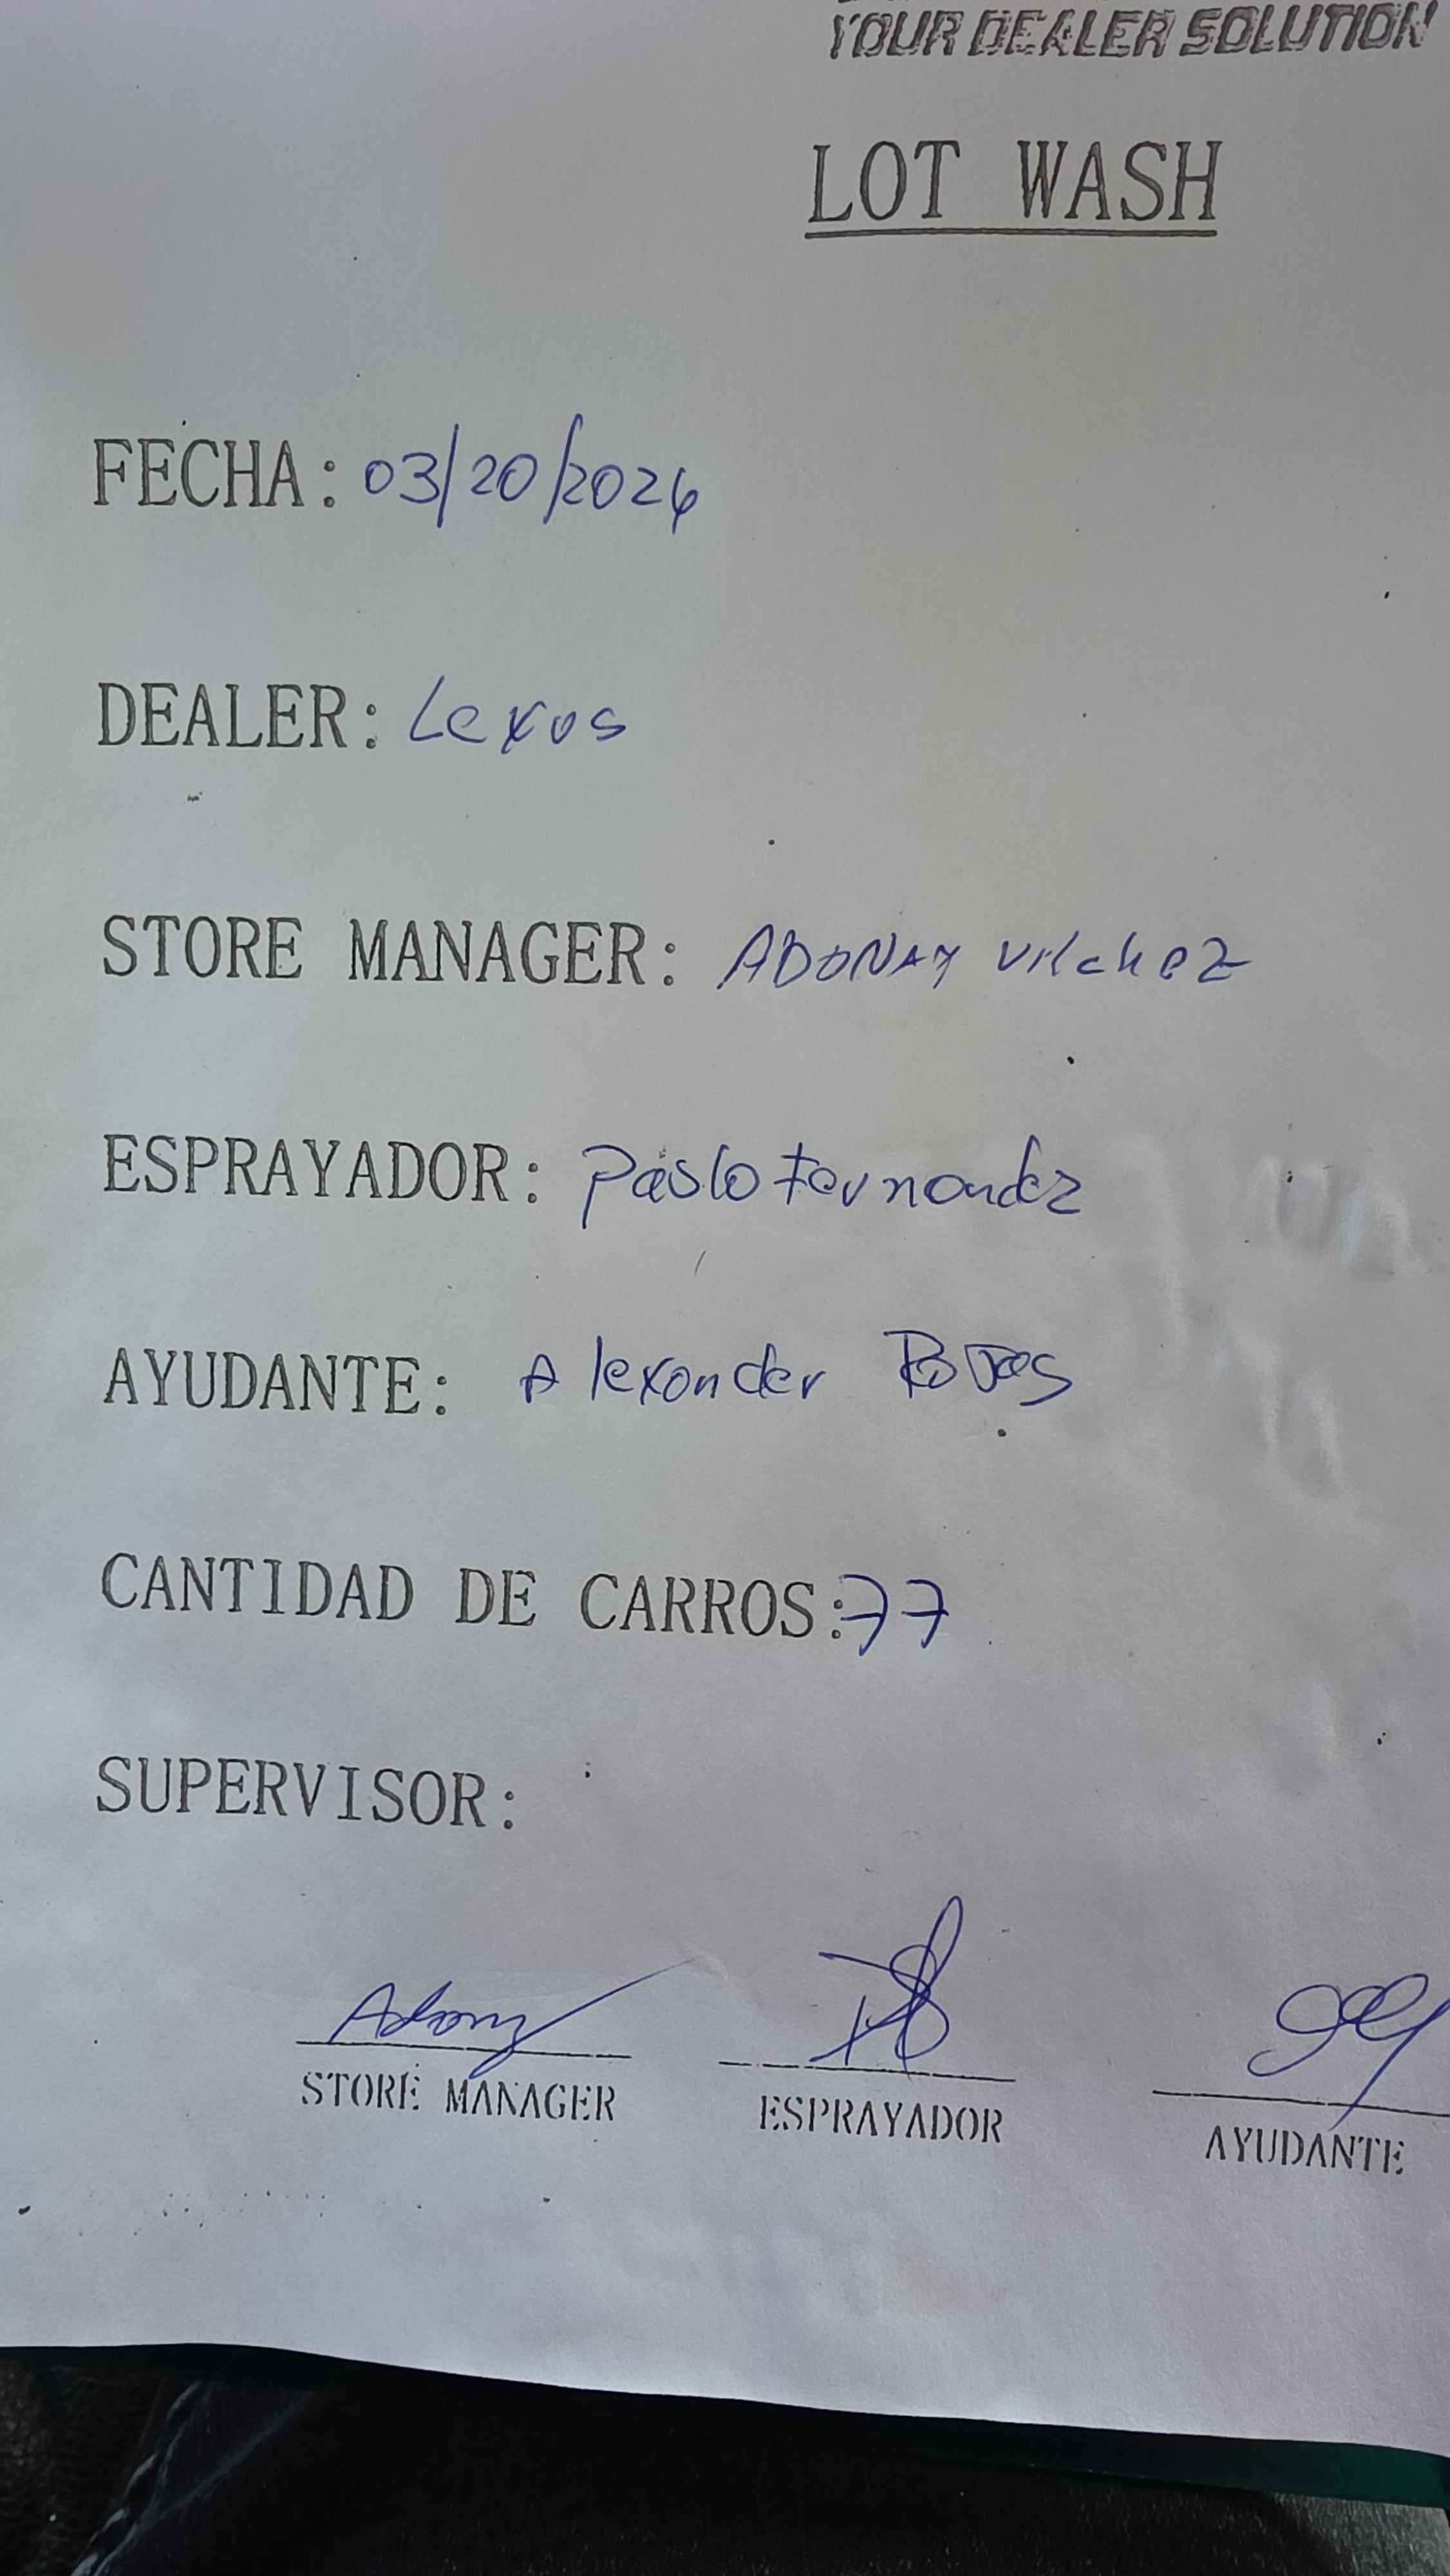 YOUR DEALER SOLUTION
LOT WASH
FECHA: 03/20/2026
DEALER: Lexus
STORE MANAGER: ADONAY Vilchez
ESPRAYADOR: Pablo Fernandez
AYUDANTE: Alexander Rojas
CANTIDAD DE CARROS: 77
SUPERVISOR:
Adony
STORE MANAGER ESPRAYADOR AYUDANTE